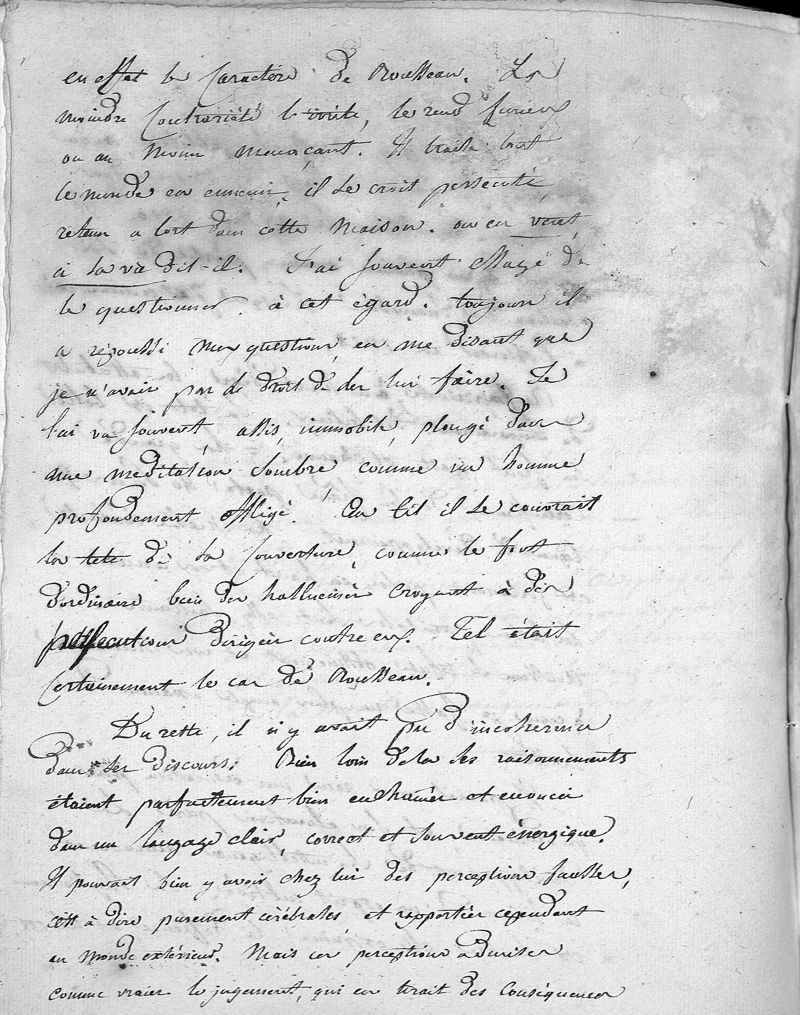 en effet le caractère de Rousseau. La
moindre contrariété l'irrite, le rend furieux
ou au moins menaçant. Il traite tout
le monde en ennemi, il se croit persécuté
retenu a tort dans cette maison. on en veut
à sa vie dit-il. J'ai souvent essayé de
le questionner à cet égard. toujours il
a repoussé mes questions, en me disant que
je n'avais pas le droit de les lui faire. Je
l'ai vu souvent, assis, immobile, plongé dans
une meditation sombre comme un homme
profondement affligé. Au lit il se couvrait
la tete de sa couverture, comme le font
d'ordinaire bien des hallucinés croyant à des
persecutions dirigées contre eux. Tel était
certainement le cas de Rousseau.
Du reste, il n'y avait pas d'incoherence
dans ses discours. Bien loin de la ses raisonnements
étaient parfaitement bien enchainés et enoncés
dans un langage clair, correct et souvent énergique.
Il pouvait bien y avoir chez lui des perceptions fausses,
c'est à dire purement cérébrales, et rapportées cependant
au monde extérieur. Mais ces perceptions admises
comme vraies le jugement, qui en tirait des consequences